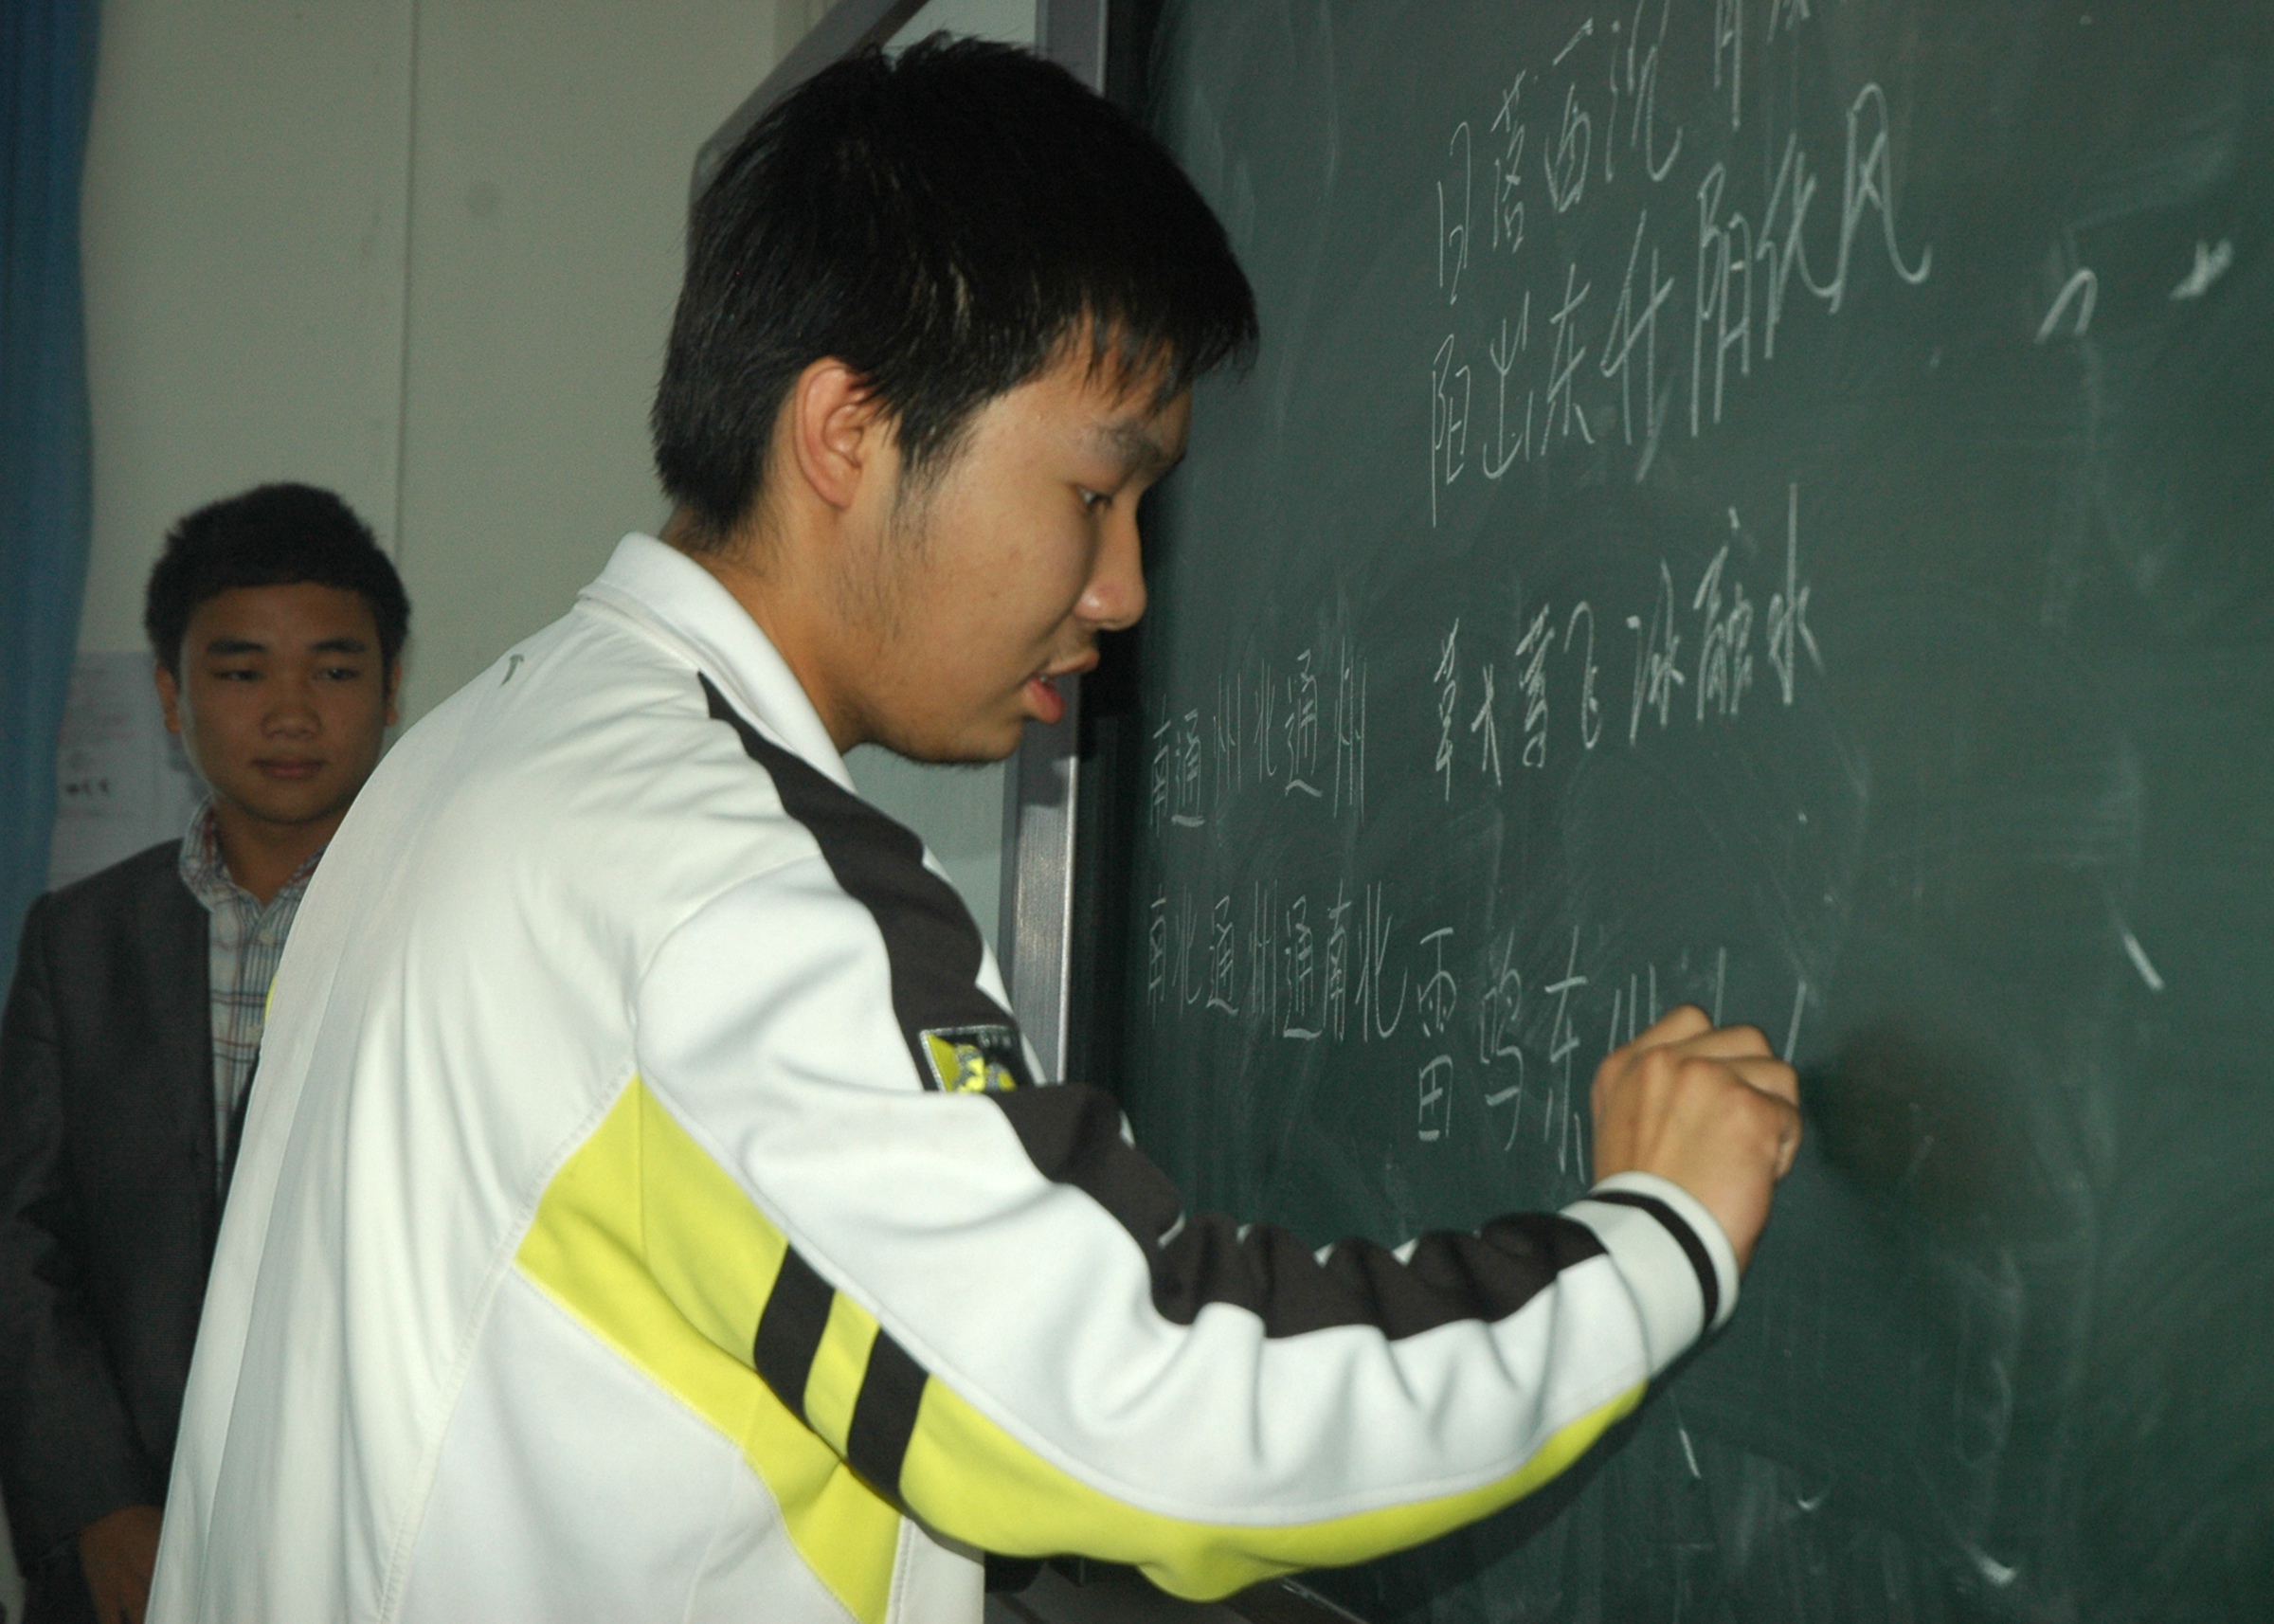 日落西沉
阳出东升阳化风
草大莺飞冰融水
南通州北通州
南北通州通南北
雷鸣东